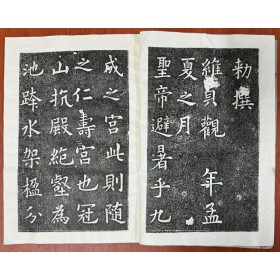 勅撰
維貞觀 年孟
夏之月
聖帝避暑乎九
成之宮此則随
之仁壽宮也冠
山抗殿絶壑為
池跨水架楹分